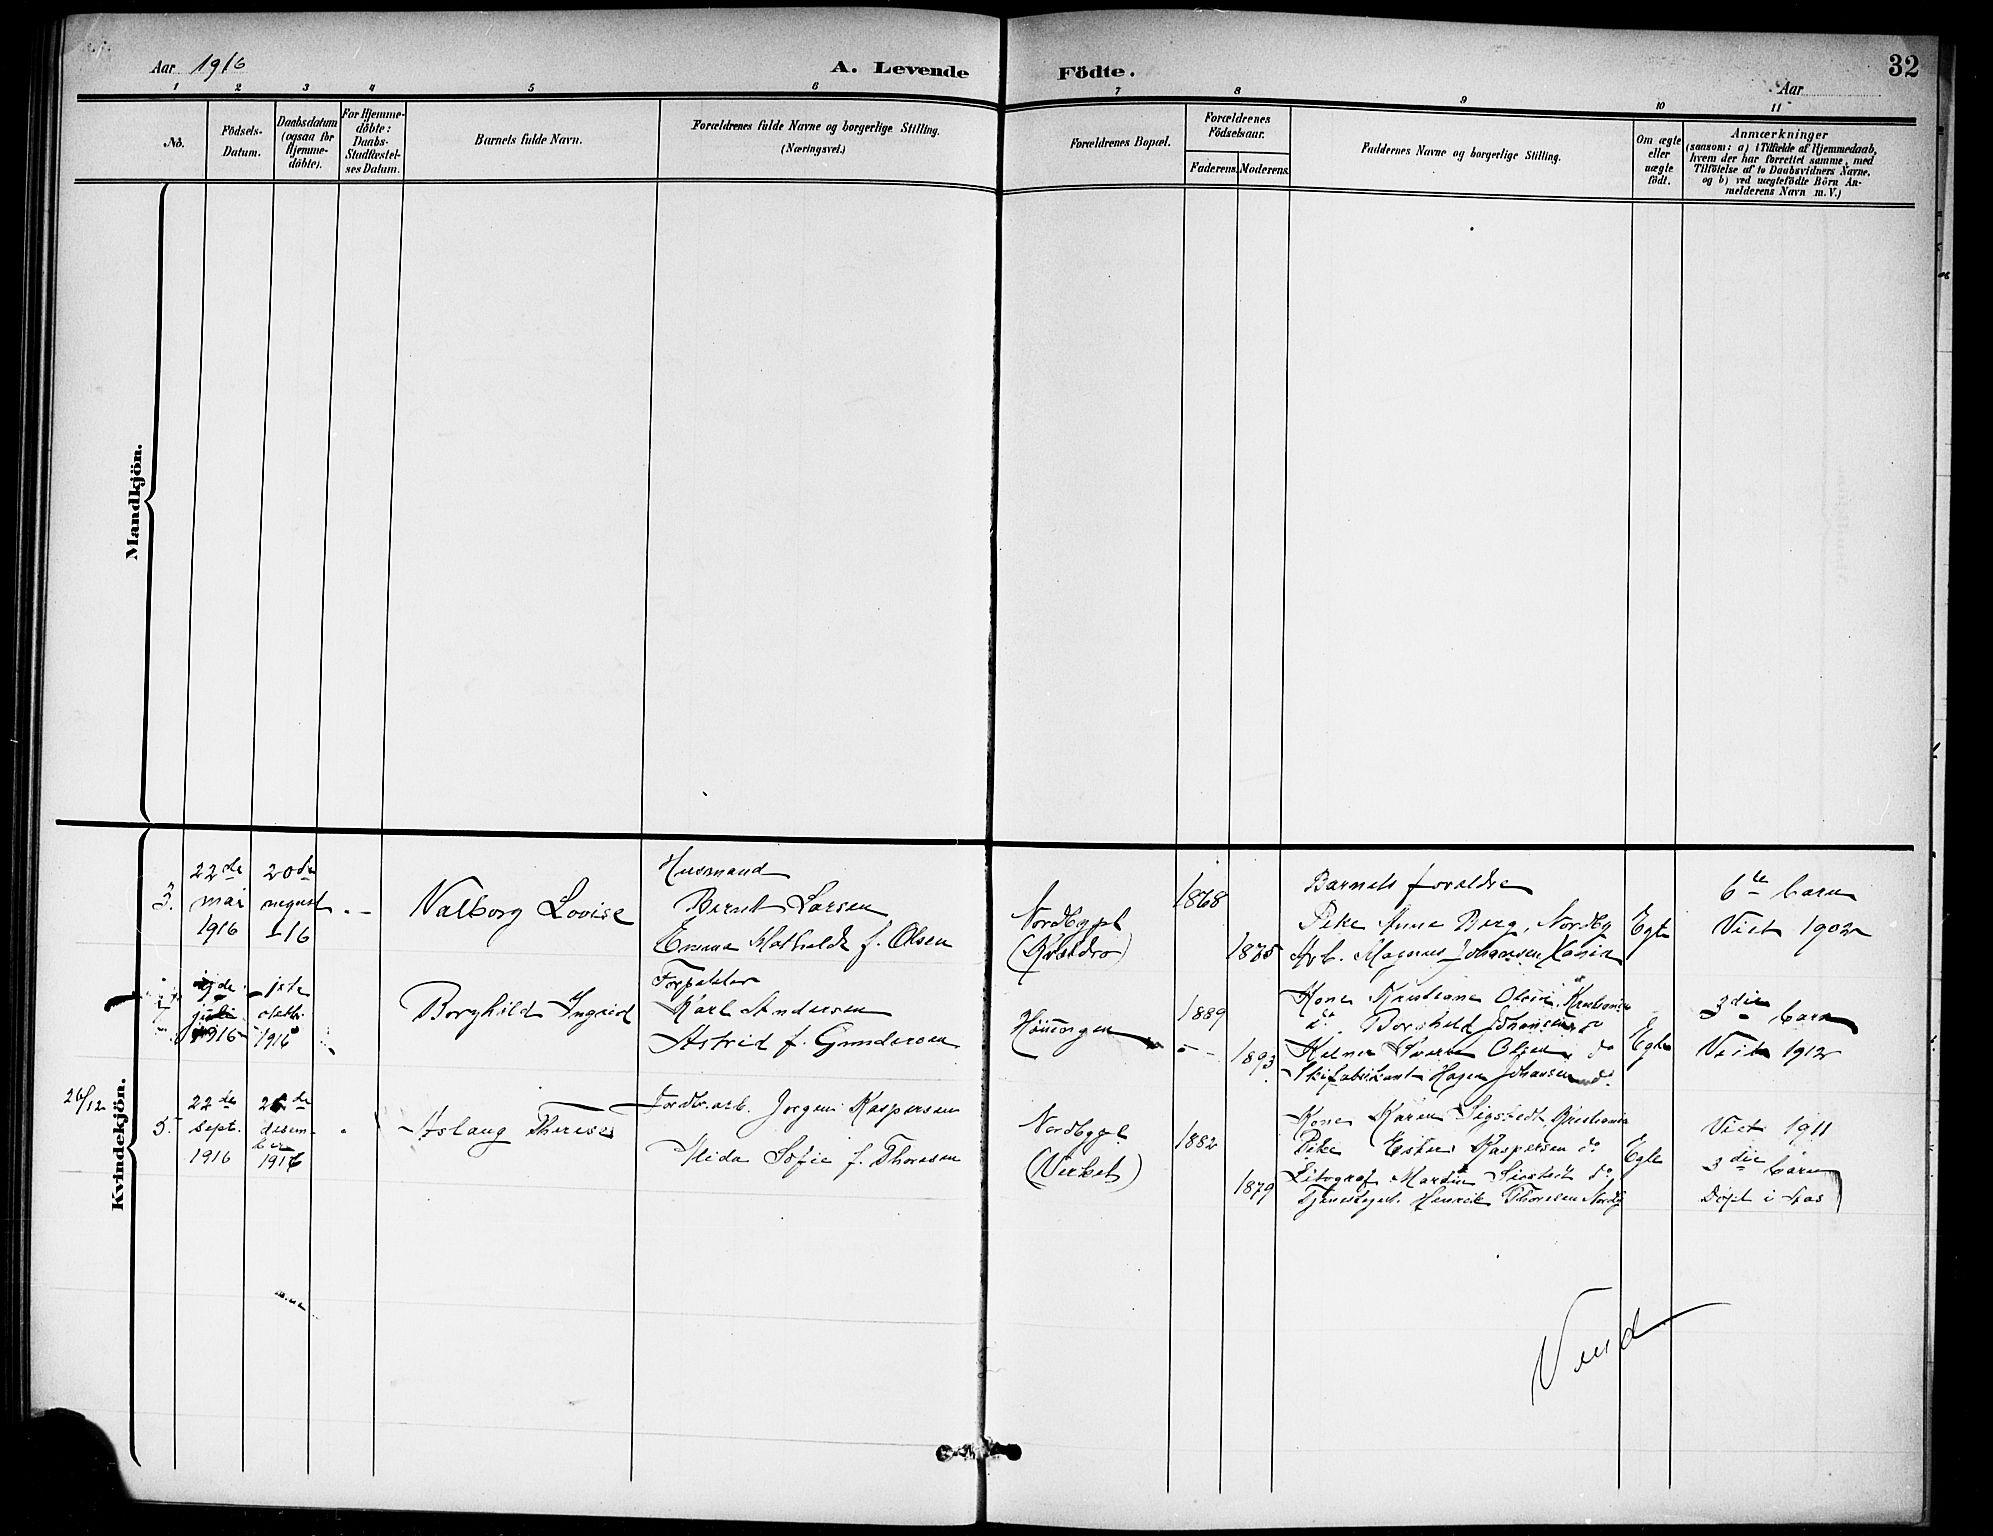 Aar 1916
A. Levende
Födte.
Aar
32
1 2 3 4 5 6 7 8 9 10 11
No.
Födsels-
Datum.
Daabsdatum
(ogsaa for
Hjemme-
döbte).
For Hjemme-
döbte:
Daabs-
Stadfæstel-
ses Datum.
Barnets fulde Navn.
Forældrenes fulde Navne og borgerlige Stilling.
(Næringsvei.)
Forældrenes Bopæl.
Forældrenes
Födselsaar.
Faderens. Moderens.
Faddernes Navne og borgerlige Stilling.
Om ægte
eller
uægte
födt.
Anmærkninger
(saasom: a) i Tilfælde af Hjemmedaab,
hvem der har forrettet samme, med
Tilföielse af to Daabsvidners Navne,
og b) ved uægtefödte Börn An-
melderens Navn m. V.)
Mandkjön.
Kvindekjön.
3.
22de
mai
1916
20de
august
16
Valborg Lovise
Husmand
Bernt Larsen
Emma Mathilde f. Olsen
Nordbypl
1868
1875
Barnets foreldre
Pike Anna Berg, Nordby
Arb. Magnus Johansen
Egte
6te barn
Viet 1902
juli
1916
1916
Borghild Ingrid
Forpakter
Karl Andersen
Astrid f. Gundersen
1889
1893
Kone Kristiane Olsen, Kristiania
do Borghild Johansen do
Olsen do
Skifabrikant Hagen Johansen do
Egte
3die barn
Viet 1912
26/12
5.
22de
sept.
1916
desem-
ber
1916
Aslaug Therese
Jordbr.arb. Jørgen Kaspersen
Alida Sofie f. Thoresen
Nordbypl
(Verket)
1882
1879
Kone Karen Sigstedt, Kristiania
Pike Ester Kaspersen do
Litograf Martin Sigstedt do
Henrik Thoresen Nordby
Egte
Viet 1911
3die barn
Døpt i
Vend